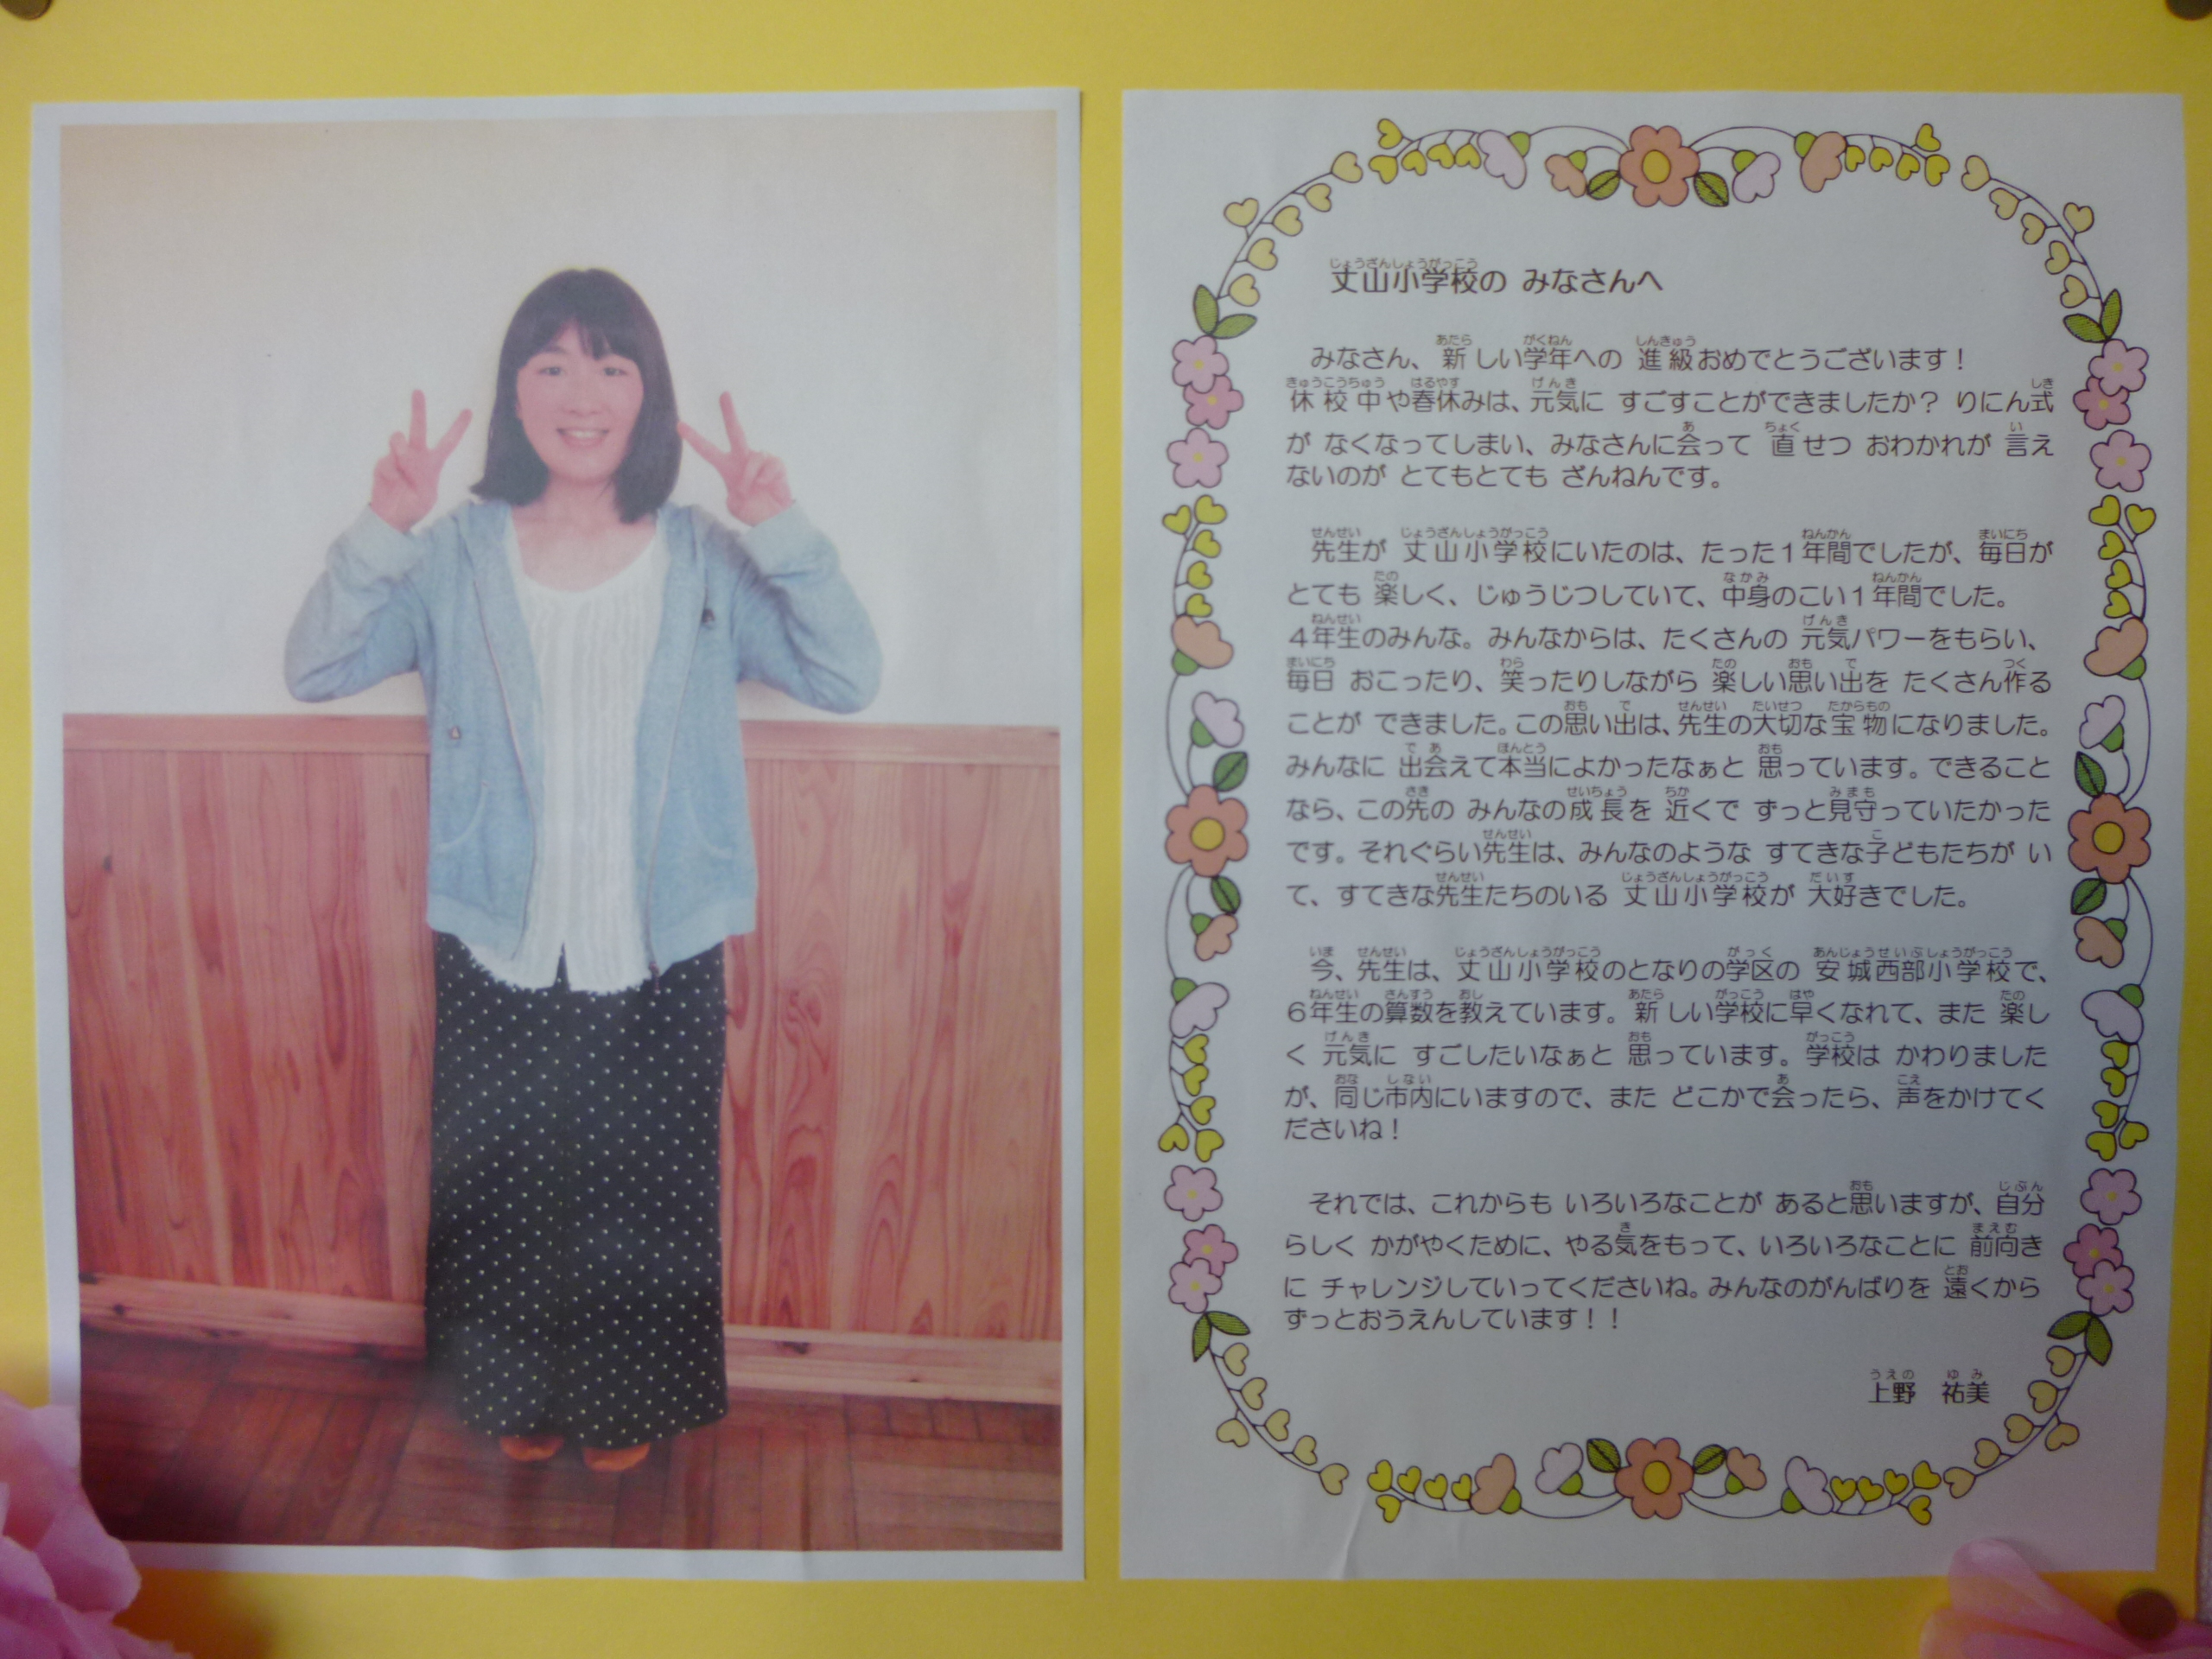 丈山小学校の みなさんへ
みなさん、新しい学年への 進級おめでとうございます！
休校中や春休みは、元気に すごすことができましたか？ りにん式
が なくなってしまい、みなさんに会って 直せつ おわかれが 言え
ないのが とてもとても ざんねんです。
先生が 丈山小学校にいたのは、たった１年間でしたが、毎日が
とても 楽しく、じゅうじつしていて、中身のこい１年間でした。
４年生のみんな。みんなからは、たくさんの 元気パワーをもらい、
毎日 おこったり、笑ったりしながら 楽しい思い出を たくさん作る
ことが できました。この思い出は、先生の大切な宝物になりました。
みんなに 出会えて本当によかったなぁと 思っています。できること
なら、この先の みんなの成長を 近くで ずっと見守っていたかった
です。それぐらい先生は、みんなのような すてきな子どもたちが い
て、すてきな先生たちのいる 丈山小学校が 大好きでした。
今、先生は、丈山小学校のとなりの学区の 安城西部小学校で、
６年生の算数を教えています。新しい学校に早くなれて、また 楽し
く 元気に すごしたいなぁと 思っています。学校は かわりました
が、同じ市内にいますので、また どこかで会ったら、声をかけてく
ださいね！
それでは、これからも いろいろなことが あると思いますが、自分
らしく かがやくために、やる気をもって、いろいろなことに 前向き
に チャレンジしていってくださいね。みんなのがんばりを 遠くから
ずっとおうえんしています！！
上野 祐美